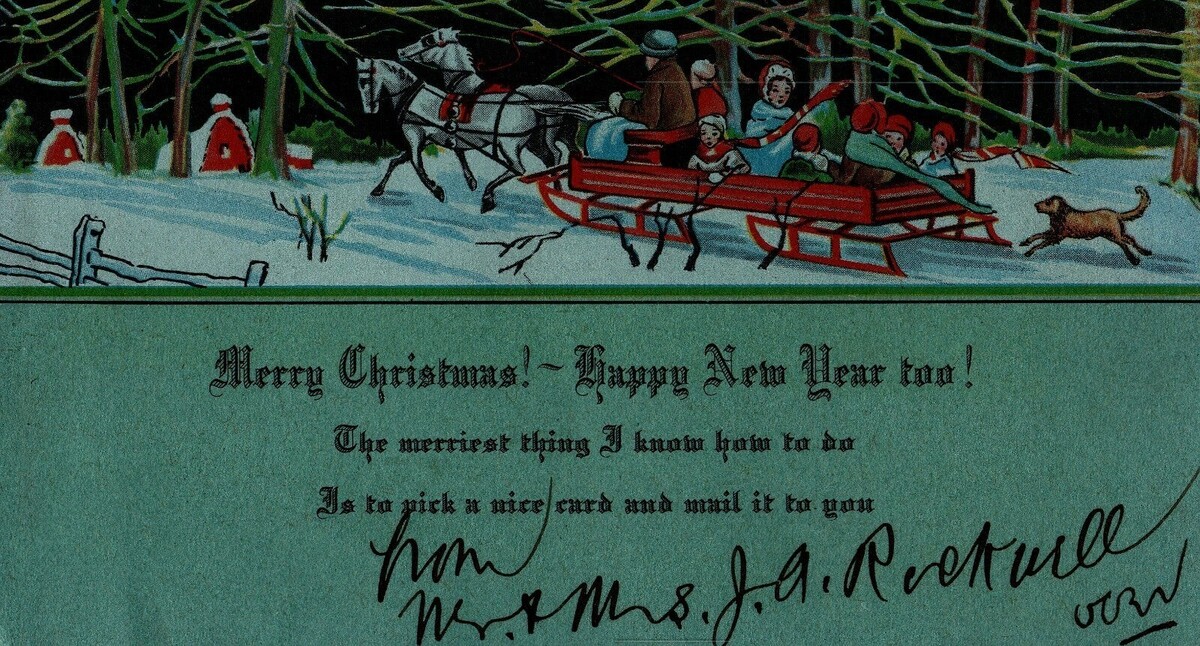 Merry Christmas! - Happy New Year too!
The merriest thing I know how to do
Is to pick a nice card and mail it to you
from
Mr. & Mrs. J. A. Rockwell
over